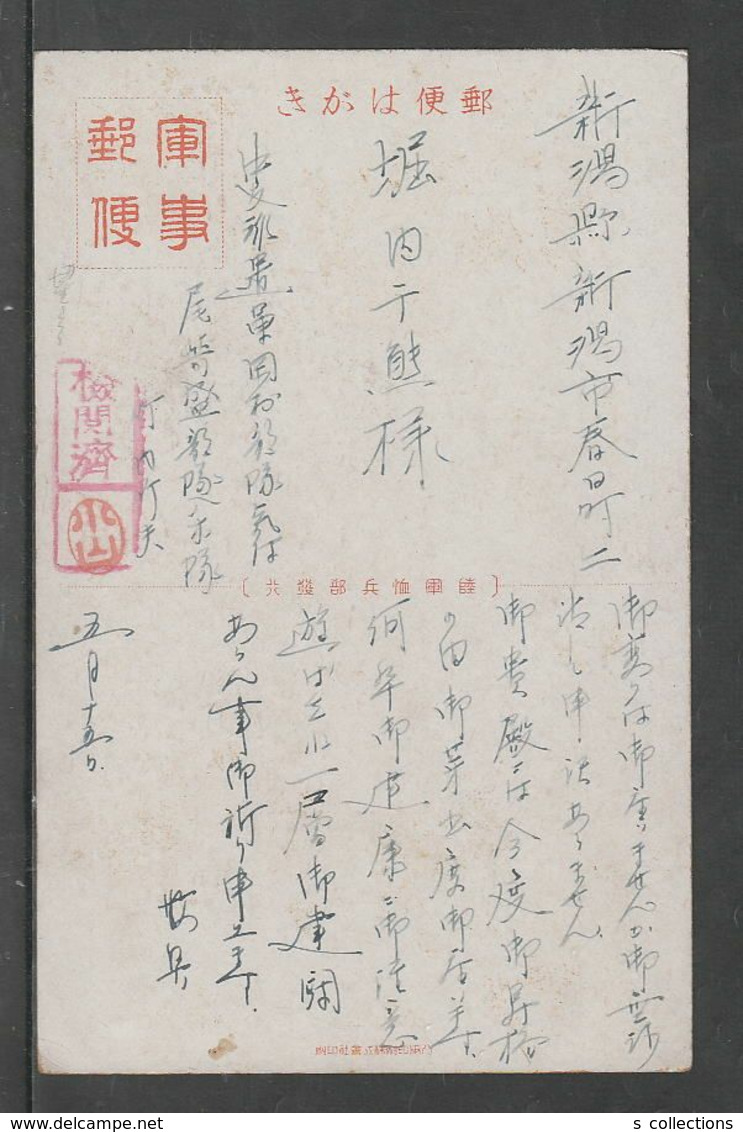 郵便はがき
軍事
郵便
新潟縣新潟市春日町二
堀内千熊様
中支派遣軍岡村部隊気付
尾崎盛部隊本隊
検閲済
陸軍恤兵部發行
御変りは御座いませんか御無沙
汰し申訳ありません
御貴殿には今度御昇格
の由御芽出度御座
何卒御健康に御注意
遊ばされ一層御健闘
あらん事御祈り申上ます
敬具
五月十五日
s collections